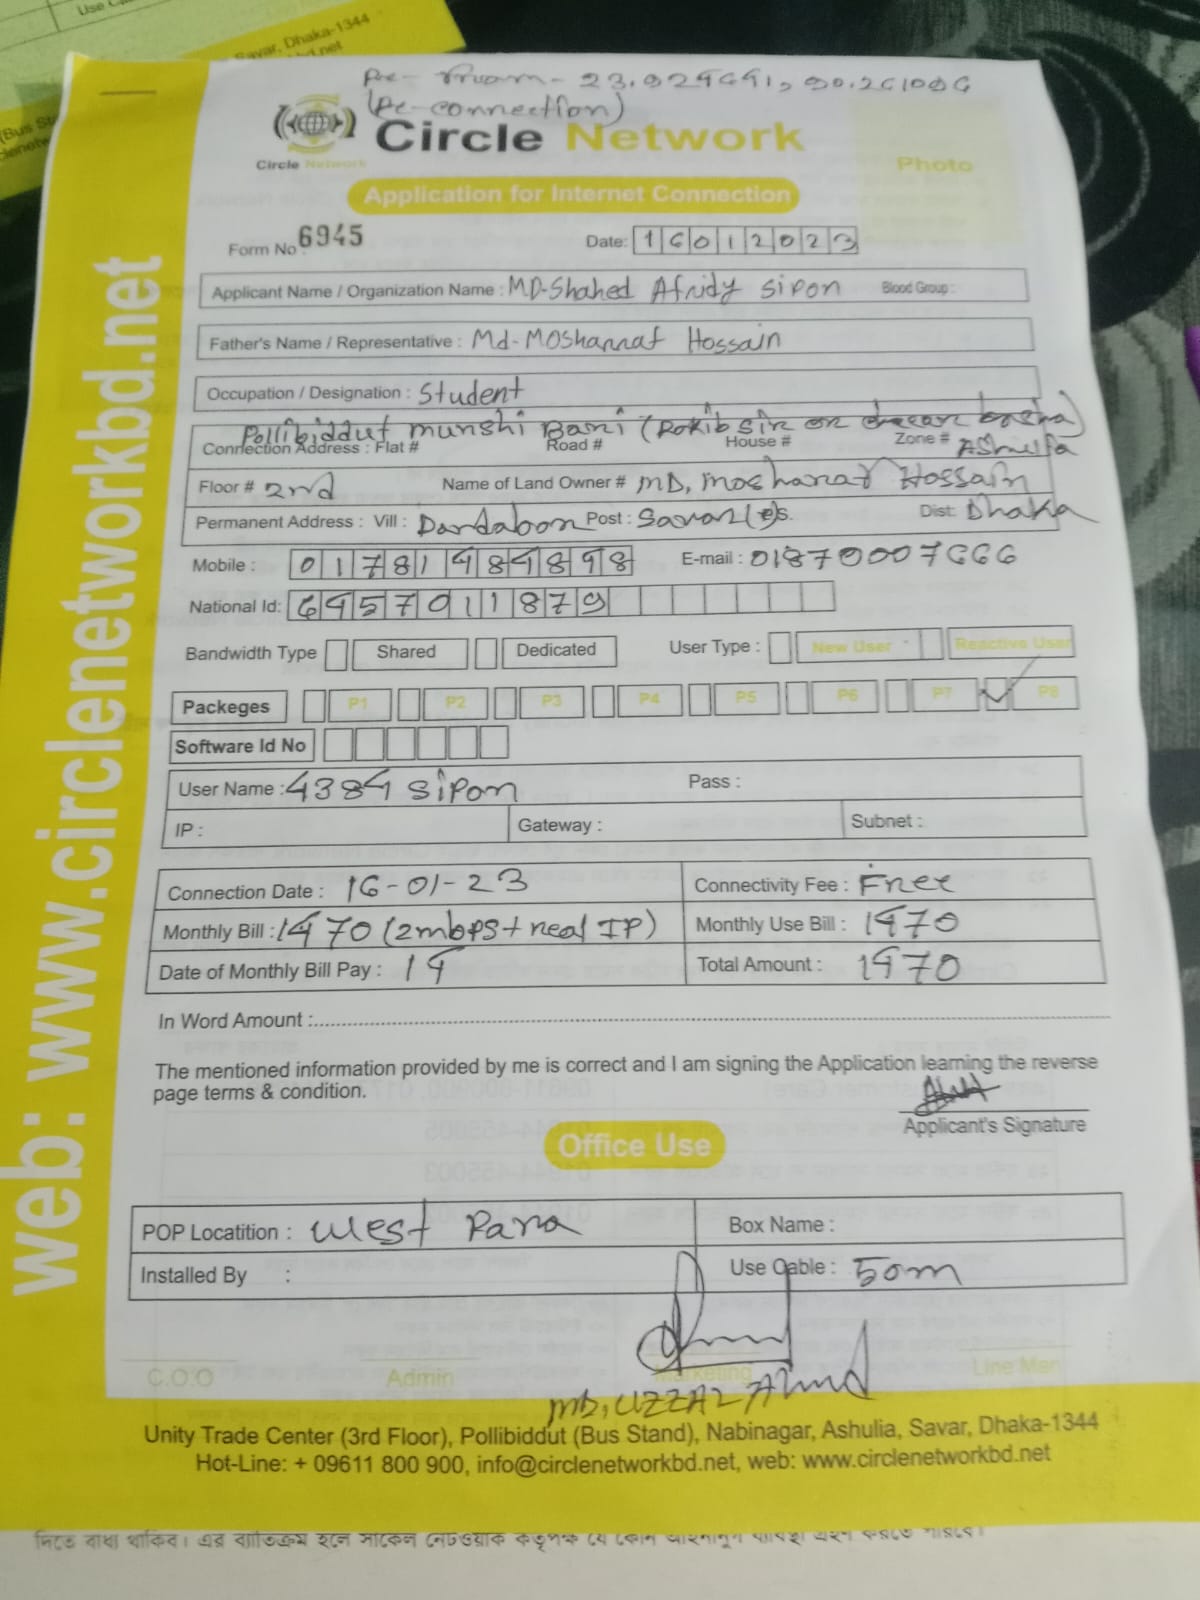 Use
Savar, Dhaka-1344
(Bus St
Pre- 23.929441, 90.261006
(Re-connection)
Circle Network
Circle Network
Photo
Application for Internet Connection
Form No 6945
Date: 16012023
Applicant Name / Organization Name : MD-Shahed Afridy Sipon Blood Group :
Father's Name / Representative : Md-Mosharraf Hossain
Occupation / Designation : Student
Pollibiddut munshi Bari (Rokib sir er
Connection Address : Flat # Road # House # Zone # Ashulia
Floor # 2nd Name of Land Owner # MD, Mosharaf Hossain
Permanent Address : Vill : Post : Savar Dist: Dhaka
Mobile : 01781484898 E-mail : 01870007666
National Id: 6457011879
Bandwidth Type Shared Dedicated User Type : New User Reactive User
Packeges P1 P2 P3 P4 P5 P6 P7 P8
Software Id No
User Name : 4384 Sipon Pass :
IP : Gateway : Subnet :
Connection Date : 16-01-23 Connectivity Fee : Free
Monthly Bill : 1470 (2mbps+real IP) Monthly Use Bill : 1470
Date of Monthly Bill Pay : 14 Total Amount : 1470
In Word Amount :
The mentioned information provided by me is correct and I am signing the Application learning the reverse
page terms & condition.
Applicant's Signature
Office Use
POP Locatition : West Para Box Name :
Installed By : Use Cable : 50m
C.O.O Admin Marketing Line Man
MD, UZZAL Ahmed
Unity Trade Center (3rd Floor), Pollibiddut (Bus Stand), Nabinagar, Ashulia, Savar, Dhaka-1344
Hot-Line: + 09611 800 900, info@circlenetworkbd.net, web: www.circlenetworkbd.net
web: www.circlenetworkbd.net
দিতে বাধ্য থাকিব। এর ব্যতিক্রম হলে সার্কেল নেটওয়াক কতৃপক্ষ যে কোন